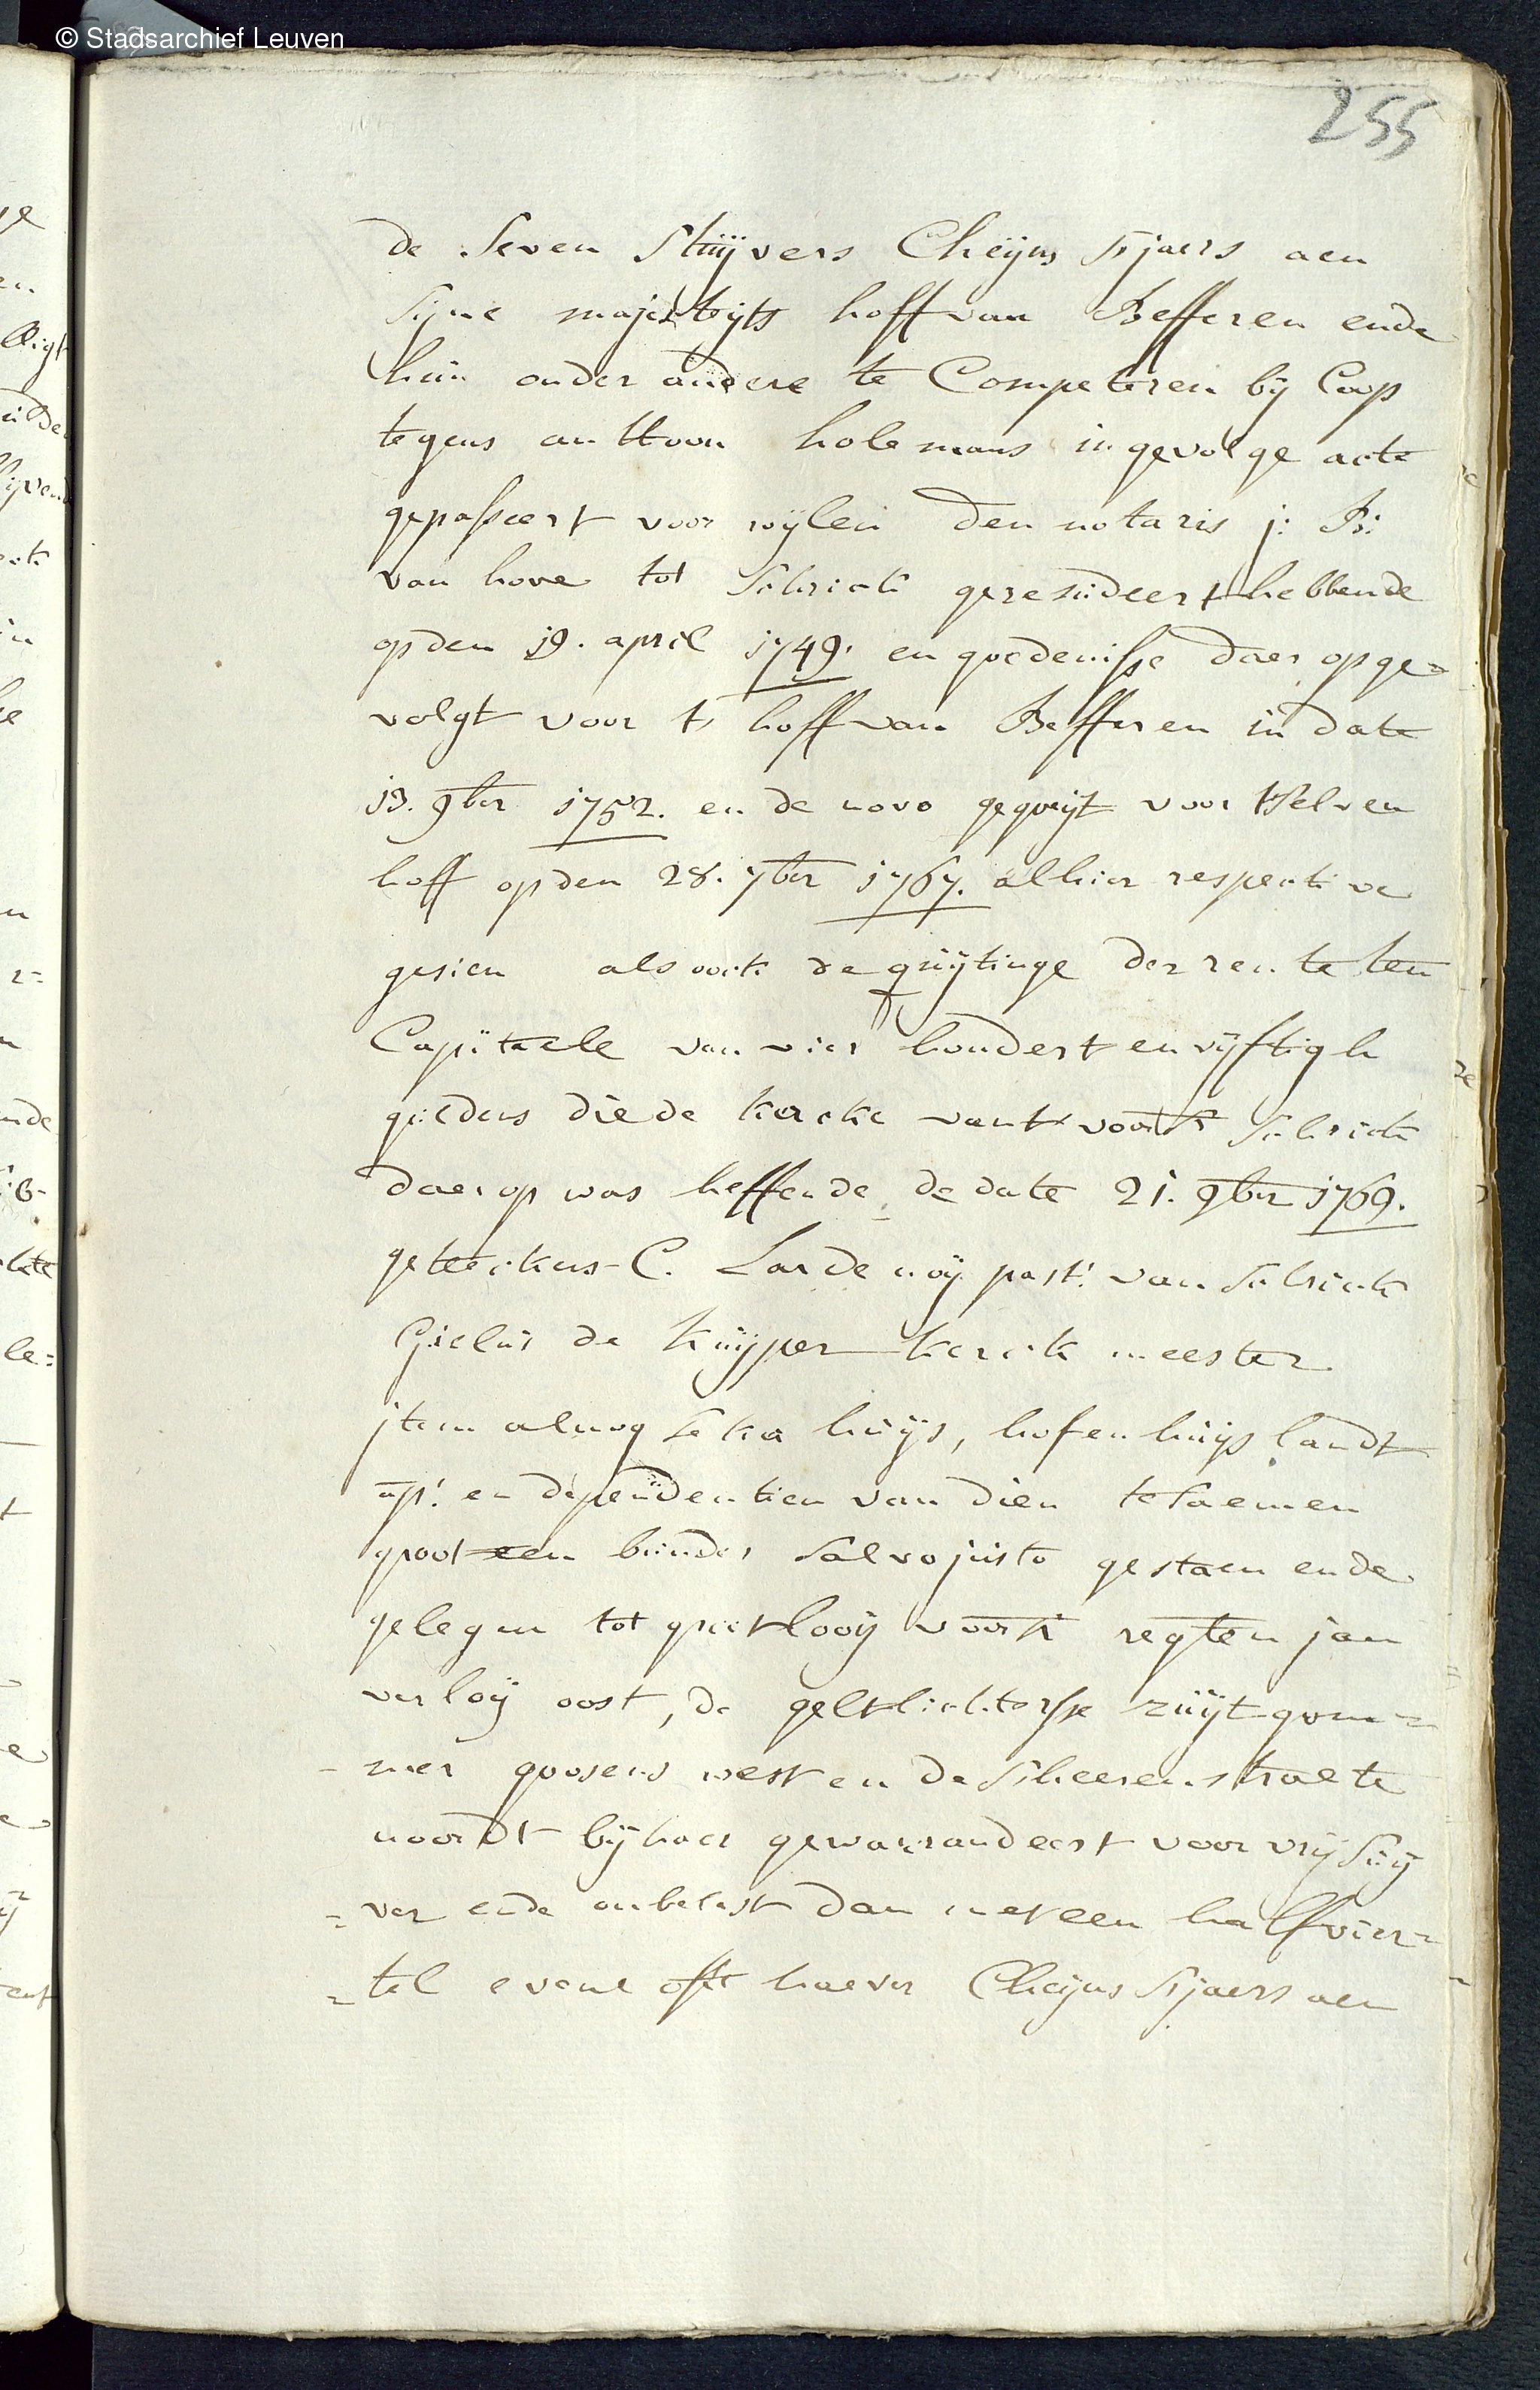 © Stadsarchief Leuven
255
de Seven Stuÿvers Cheÿns Sjaers aen
Sijne majesteÿts hoff van Befferen ende
hun onder andere te Competeren bÿ Coop
tegens anthoon holemans ingevolge acte
gepasseert voor wÿlen den notaris j: B:
van hove tot Schrieck geresideert hebbende
opden 19. april 1749. en goedenisse daer opge=
volgt voor t' hoff van Befferen in date
13. 9ber 1752. en de novo gegoeÿt voor tselven
hoff opden 28. 7ber 1767. alhier respective
gesien als oock de quÿtinge der rente ten
Capitaele van vier hondert en vÿftigh
guldens die de kercke vant voors: Schrieck
daerop was heffende de date 21. 9ber 1769.
geteekens C. Lardenoÿ past: van Schrieck
Gielis de kuÿper kerck meester
jtem alnog seker huÿs, hof en huÿs landt
ap: en dependentien van dien tesaemen
groot een bunder Salvo justo gestaen ende
gelegen tot grootlooÿ voors: regten jan
verloÿ oost, de zuÿt gom=
mer goosens west en de Scheerenstraete
noordt bÿ haer gewarrandeert voor vrÿ suÿ
=ver ende onbelast dan met een half vier=
=tel evene oft haever Cheÿns Sjaers aen